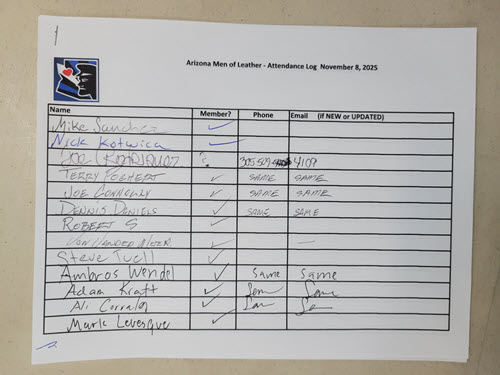 1
Arizona Men of Leather - Attendance Log November 8, 2025
Name Member? Phone Email (if NEW or UPDATED)
Mike Sanchez ✓
Nick Kotwica ✓
Joe
Terry Poehert ✓ SAME SAME
Joe Connolly ✓ SAME SAME
Dennis Daniels ✓ SAME SAME
Robert S ✓
✓ —
Steve Tuell ✓
Ambros Wendel ✓ Same Same
Adam Kraft ✓ Same Same
Ali ✓
Mark Levesque ✓